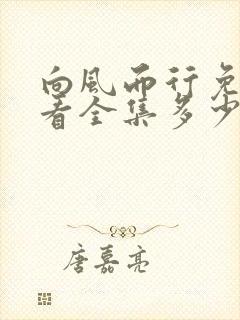 向风而行免
看全集多少
唐嘉亮